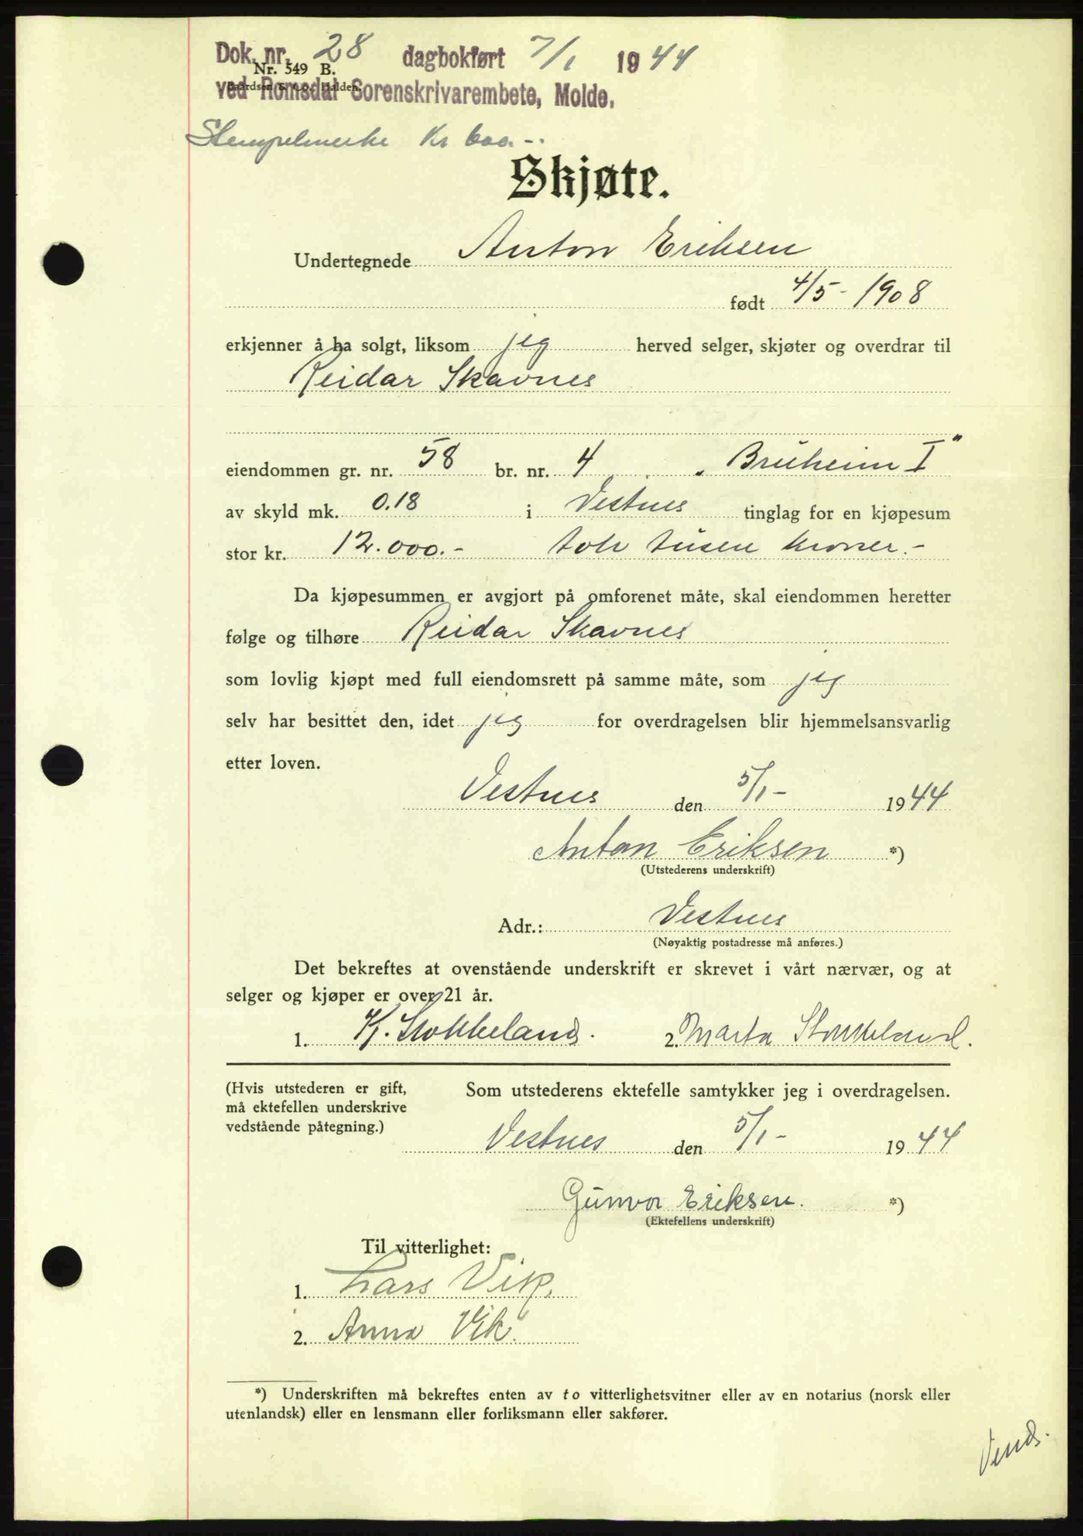 Dok. nr. 28 dagbokført 7/1 1944
Nr. 549 B.
ved Romsdal Sorenskrivarembete, Molde.
Stempelmerke Kr 600.--
Skjøte.
Undertegnede Anton Eriksen
født 4/5-1908
erkjenner å ha solgt, liksom jeg herved selger, skjøter og overdrar til
Reidar Skavnes
eiendommen gr. nr. 58 br. nr. 4 „Bruheim I"
av skyld mk. 0.18 i Vestnes tinglag for en kjøpesum
stor kr. 12.000.- tolv tusen kroner.-
Da kjøpesummen er avgjort på omforenet måte, skal eiendommen heretter
følge og tilhøre Reidar Skavnes
som lovlig kjøpt med full eiendomsrett på samme måte, som jeg
selv har besittet den, idet jeg for overdragelsen blir hjemmelsansvarlig
etter loven.
Vestnes den 5/1- 1944
Anton Eriksen *)
(Utstederens underskrift)
Adr.: Vestnes
(Nøyaktig postadresse må anføres.)
Det bekreftes at ovenstående underskrift er skrevet i vårt nærvær, og at
selger og kjøper er over 21 år.
1. K. Stokkeland. 2. Marta Stokkeland.
(Hvis utstederen er gift, Som utstederens ektefelle samtykker jeg i overdragelsen.
må ektefellen underskrive
vedstående påtegning.)
Vestnes den 5/1- 1944
Gunvor Eriksen. *)
(Ektefellens underskrift)
Til vitterlighet:
1. Lars Vik.
2. Anna Vik.
*) Underskriften må bekreftes enten av to vitterlighetsvitner eller av en notarius (norsk eller
utenlandsk) eller en lensmann eller forliksmann eller sakfører.
Vend.